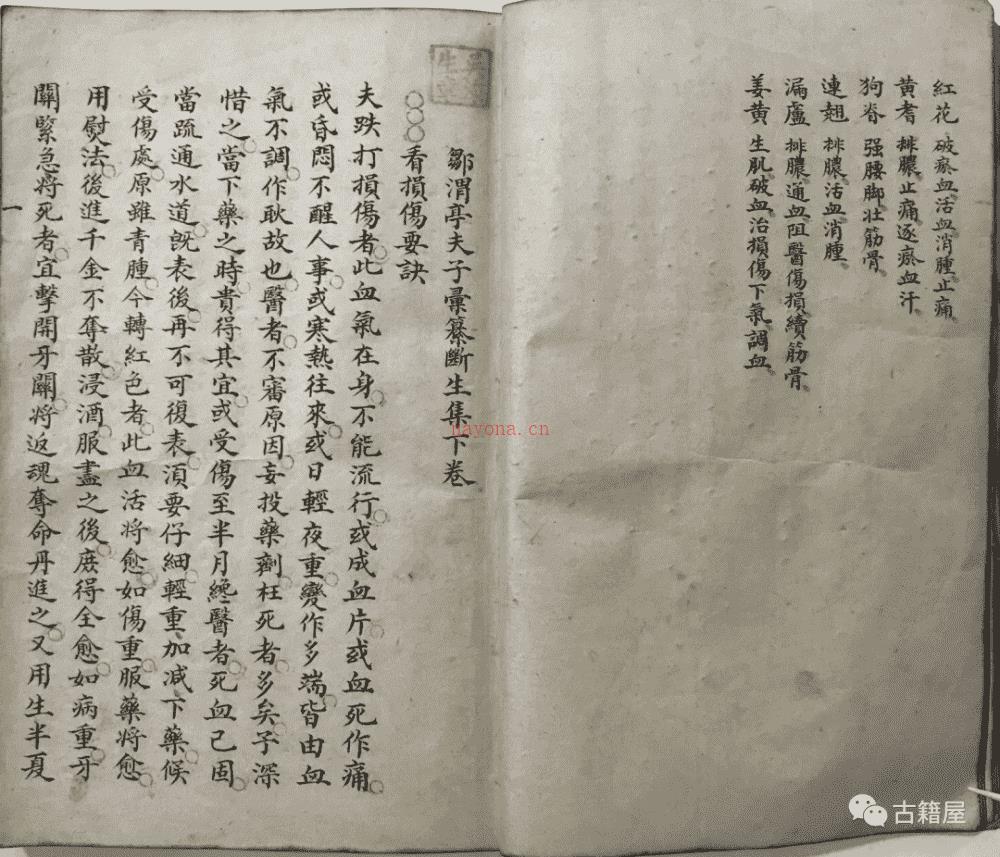 紅花 破瘀血活血消腫止痛
黄耆 排膿止痛逐瘀血汗
狗脊 强腰脚壮筋骨
連翹 排膿活血消腫
漏盧 排膿通血阻醫傷損續筋骨
姜黄 生肌破血治損傷下氣調血
鄒渭亭夫子彙纂斷生集下卷
○○○看損傷要訣
夫跌打損傷者此血氣在身不能流行或成血片或血死作痛
或昏悶不醒人事或寒熱往來或日輕夜重變作多端皆由血
氣不調作耿故也醫者不審原因妄投藥劑枉死者多矣予深
惜之當下藥之時貴得其宜或受傷至半月纔醫者死血已固
當疏通水道旣表後再不可復表湏要仔細輕重加减下藥候
受傷處原雖青腫今轉紅色者此血活将愈如傷重服藥将愈
用熨法後進千金不奪散浸酒服盡之後庶得全愈如病重牙
關緊急将死者宜擊開牙關将返魂奪命丹進之又用生半夏
一
nayona.cn
古籍屋